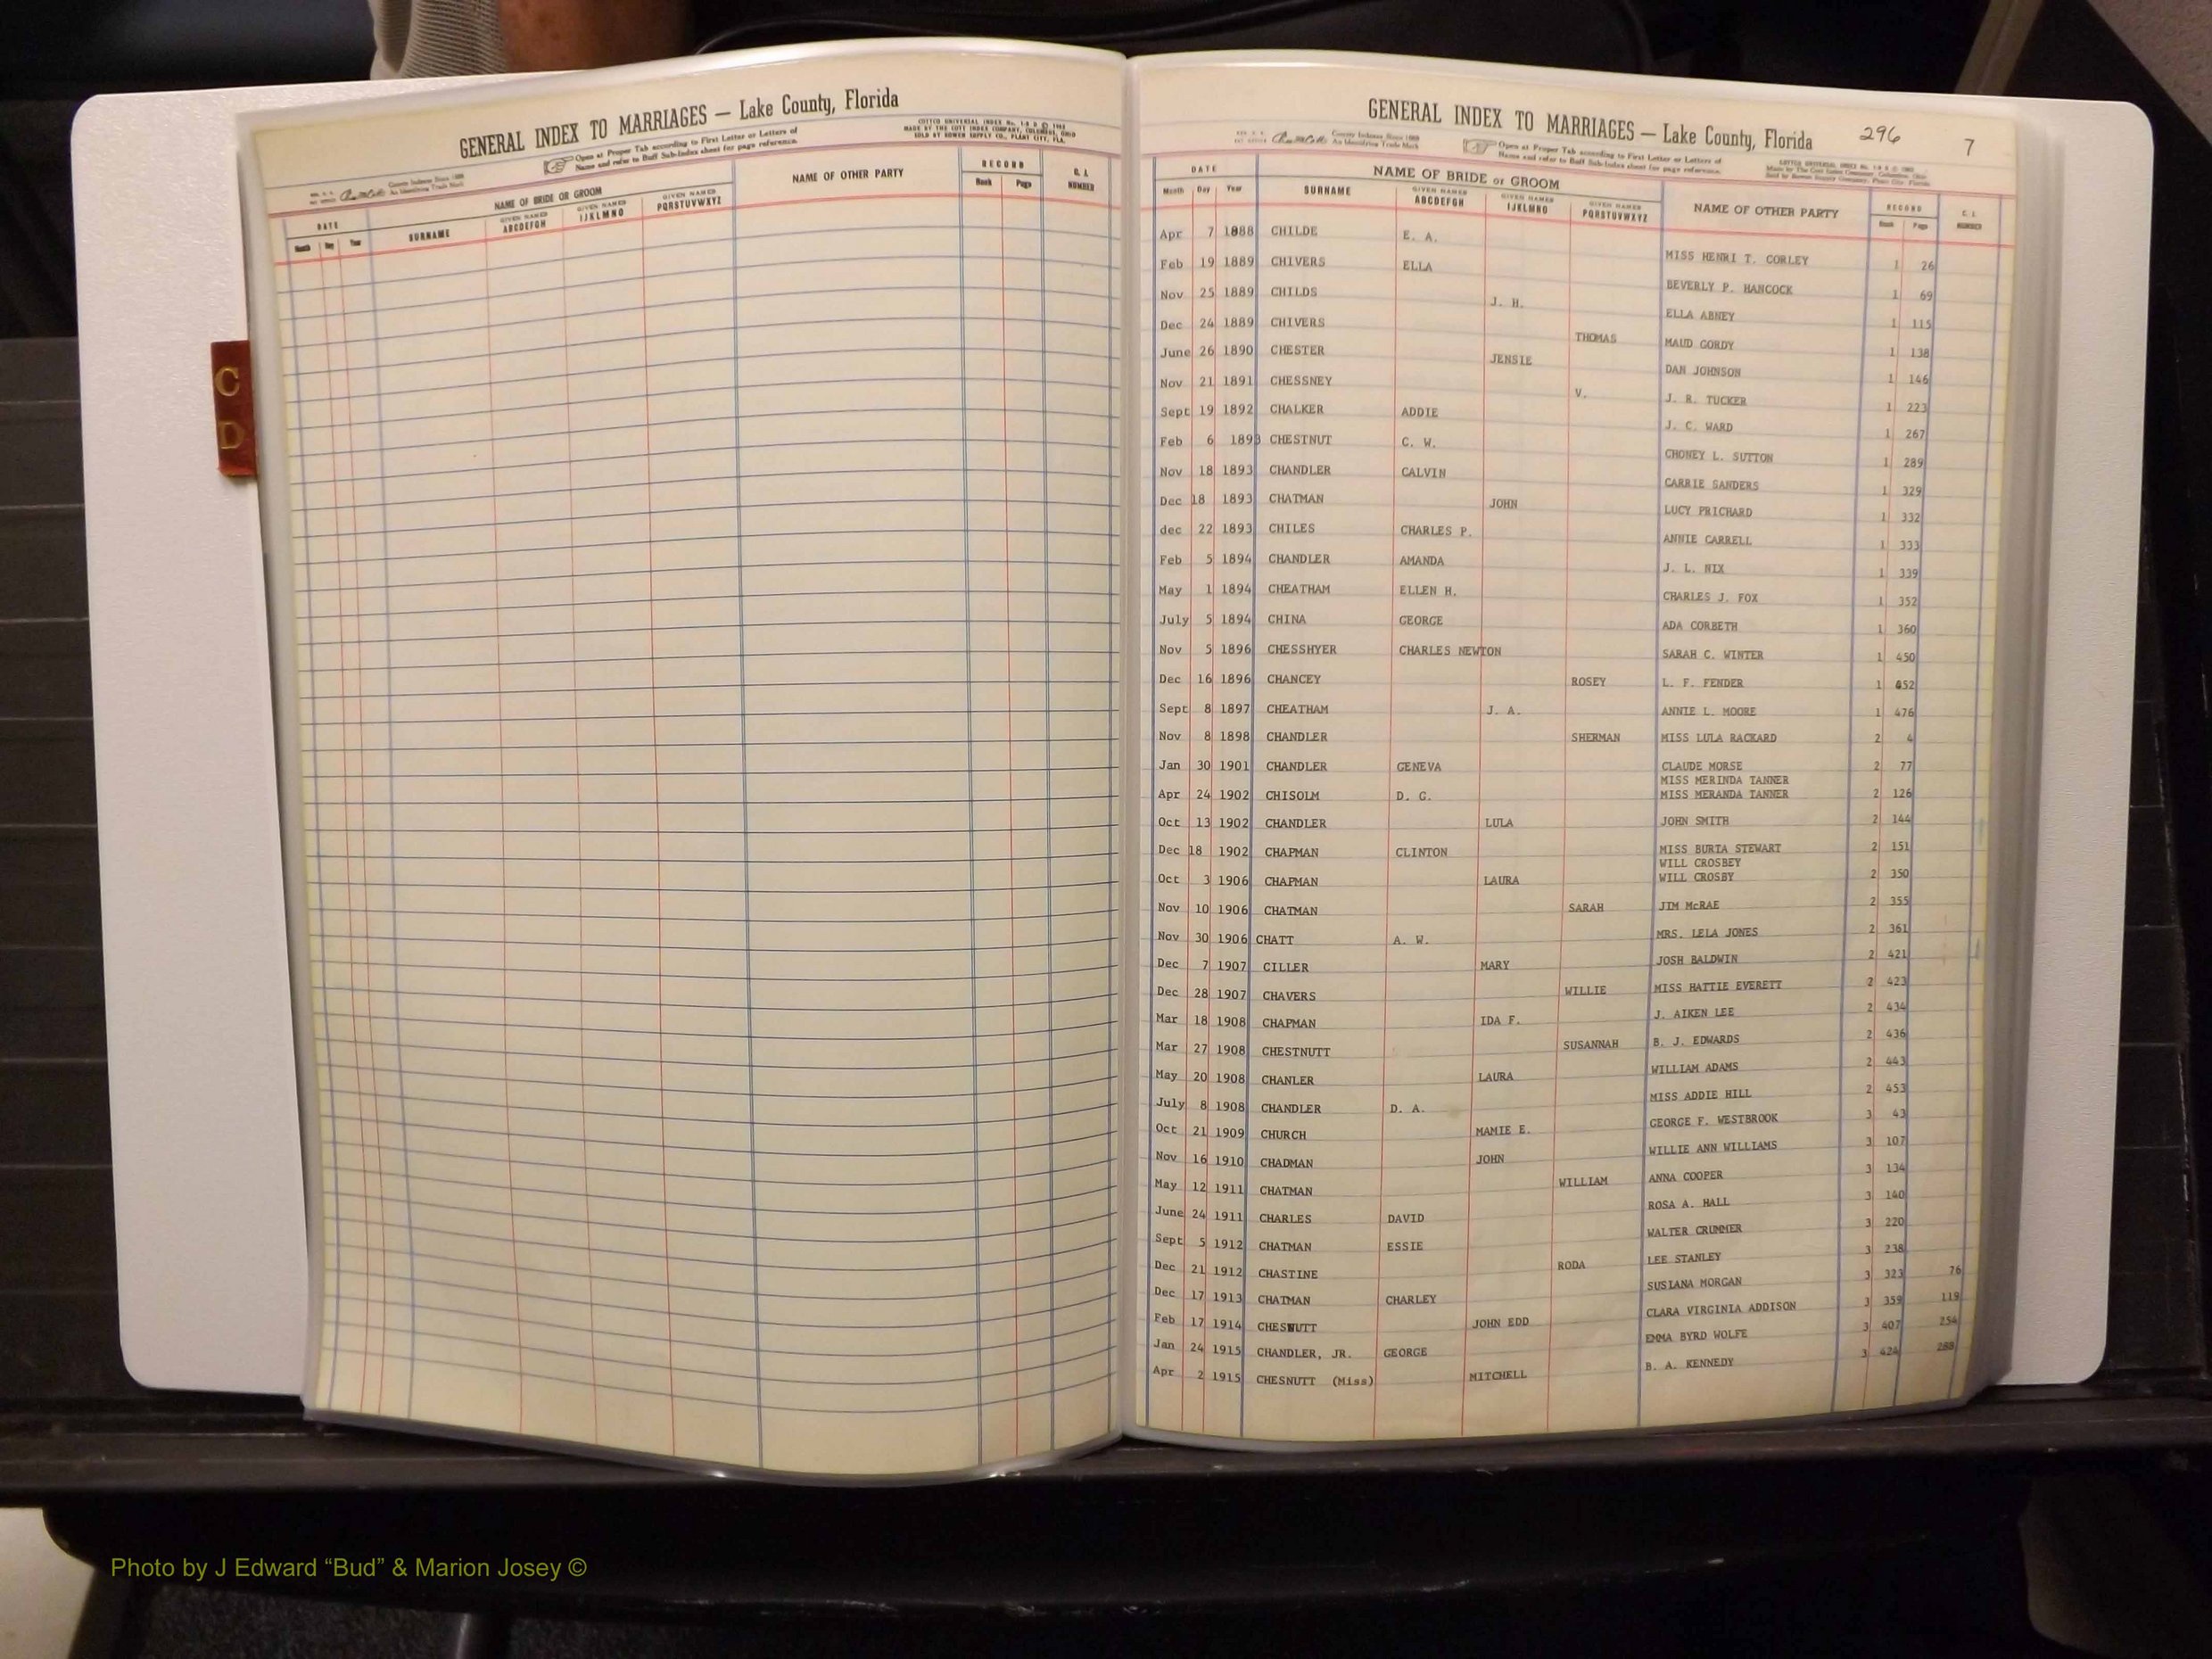 GENERAL INDEX TO MARRIAGES — Lake County, Florida
COTTCO UNIVERSAL INDEX No.
MADE BY THE COTT INDEX COMPANY, COLUMBUS, OHIO
SOLD BY BOWEN SUPPLY CO., PLANT CITY, FLA.
Open at Proper Tab according to First Letter or Letters of
Name and refer to Buff Sub-Index sheet for page reference.
County Indexes Since 1888
An Identifying Trade Mark
DATE NAME OF BRIDE OR GROOM NAME OF OTHER PARTY RECORD C. I. NUMBER
Month Day Year SURNAME GIVEN NAMES ABCDEFGH GIVEN NAMES IJKLMNO GIVEN NAMES PQRSTUVWXYZ Book Page
C
D
GENERAL INDEX TO MARRIAGES — Lake County, Florida 296 7
County Indexes Since 1888
An Identifying Trade Mark
Open at Proper Tab according to First Letter or Letters of
Name and refer to Buff Sub-Index sheet for page reference.
DATE NAME OF BRIDE or GROOM NAME OF OTHER PARTY RECORD C. I. NUMBER
Month Day Year SURNAME GIVEN NAMES ABCDEFGH GIVEN NAMES IJKLMNO GIVEN NAMES PQRSTUVWXYZ Book Page
Apr 7 1888 CHILDE E. A. MISS HENRI T. CORLEY 1 26
Feb 19 1889 CHIVERS ELLA BEVERLY P. HANCOCK 1 69
Nov 25 1889 CHILDS J. H. ELLA ABNEY 1 115
Dec 24 1889 CHIVERS THOMAS MAUD GORDY 1 138
June 26 1890 CHESTER JENSIE DAN JOHNSON 1 146
Nov 21 1891 CHESSNEY V. J. R. TUCKER 1 223
Sept 19 1892 CHALKER ADDIE J. C. WARD 1 267
Feb 6 1893 CHESTNUT C. W. CHONEY L. SUTTON 1 289
Nov 18 1893 CHANDLER CALVIN CARRIE SANDERS 1 329
Dec 18 1893 CHATMAN JOHN LUCY PRICHARD 1 332
dec 22 1893 CHILES CHARLES P. ANNIE CARRELL 1 333
Feb 5 1894 CHANDLER AMANDA J. L. NIX 1 339
May 1 1894 CHEATHAM ELLEN H. CHARLES J. FOX 1 352
July 5 1894 CHINA GEORGE ADA CORBETH 1 360
Nov 5 1896 CHESSHYER CHARLES NEWTON SARAH C. WINTER 1 450
Dec 16 1896 CHANCEY ROSEY L. F. FENDER 1 452
Sept 8 1897 CHEATHAM J. A. ANNIE L. MOORE 1 476
Nov 8 1898 CHANDLER SHERMAN MISS LULA RACKARD 2 4
Jan 30 1901 CHANDLER GENEVA CLAUDE MORSE 2 77
MISS MERINDA TANNER
Apr 24 1902 CHISOLM D. G. MISS MERANDA TANNER 2 126
Oct 13 1902 CHANDLER LULA JOHN SMITH 2 144
Dec 18 1902 CHAPMAN CLINTON MISS BURTA STEWART 2 151
WILL CROSBEY
Oct 3 1906 CHAPMAN LAURA WILL CROSBY 2 350
Nov 10 1906 CHATMAN SARAH JIM McRAE 2 355
Nov 30 1906 CHATT A. W. MRS. LELA JONES 2 361
Dec 7 1907 CILLER MARY JOSH BALDWIN 2 421
Dec 28 1907 CHAVERS WILLIE MISS HATTIE EVERETT 2 423
Mar 18 1908 CHAPMAN IDA F. J. AIKEN LEE 2 434
Mar 27 1908 CHESTNUTT SUSANNAH B. J. EDWARDS 2 436
May 20 1908 CHANLER LAURA WILLIAM ADAMS 2 443
July 8 1908 CHANDLER D. A. MISS ADDIE HILL 2 453
Oct 21 1909 CHURCH MAMIE E. GEORGE F. WESTBROOK 3 43
Nov 16 1910 CHADMAN JOHN WILLIE ANN WILLIAMS 3 107
May 12 1911 CHATMAN WILLIAM ANNA COOPER 3 134
June 24 1911 CHARLES DAVID ROSA A. HALL 3 140
Sept 5 1912 CHATMAN ESSIE WALTER CRUMMER 3 220
Dec 21 1912 CHASTINE RODA LEE STANLEY 3 238
Dec 17 1913 CHATMAN CHARLEY SUSIANA MORGAN 3 323 76
Feb 17 1914 CHESNUTT JOHN EDD CLARA VIRGINIA ADDISON 3 359 119
Jan 24 1915 CHANDLER, JR. GEORGE EMMA BYRD WOLFE 3 407 254
Apr 2 1915 CHESNUTT (Miss) MITCHELL B. A. KENNEDY 3 424 288
Photo by J Edward “Bud” & Marion Josey ©